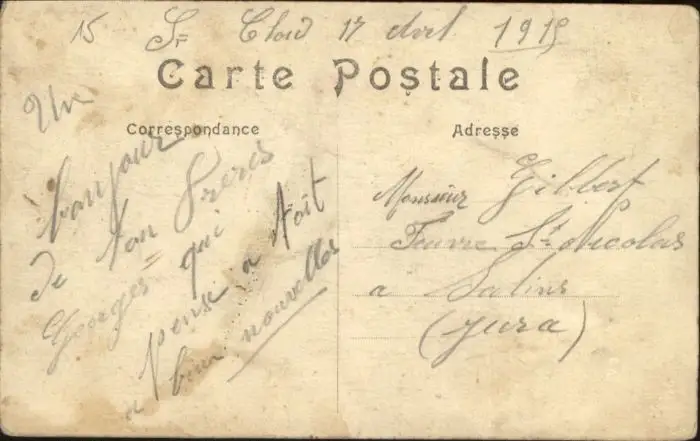 15 St Cloud 17 Avril 1915
Carte Postale
Correspondance
Un
bonjour
de ton Freres
Georges qui
pense a toit
a bien nouvelles
Adresse
Monsieur Gilbert
Feuvre St Nicolas
a Salins
(Jura)